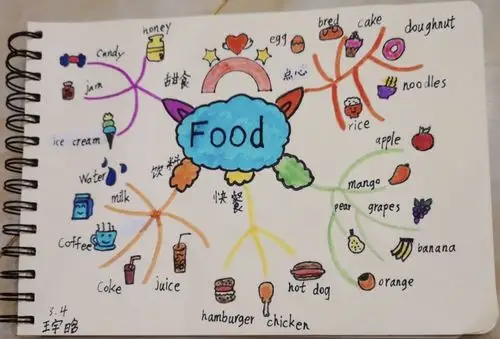 honey
candy
jam
ice cream
甜食
egg
bred
cake
doughnut
点心
noodles
rice
Food
apple
mango
pear
grapes
banana
orange
Water
饮料
milk
Coffee
Coke
juice
快餐
hamburger
chicken
hot dog
3.4